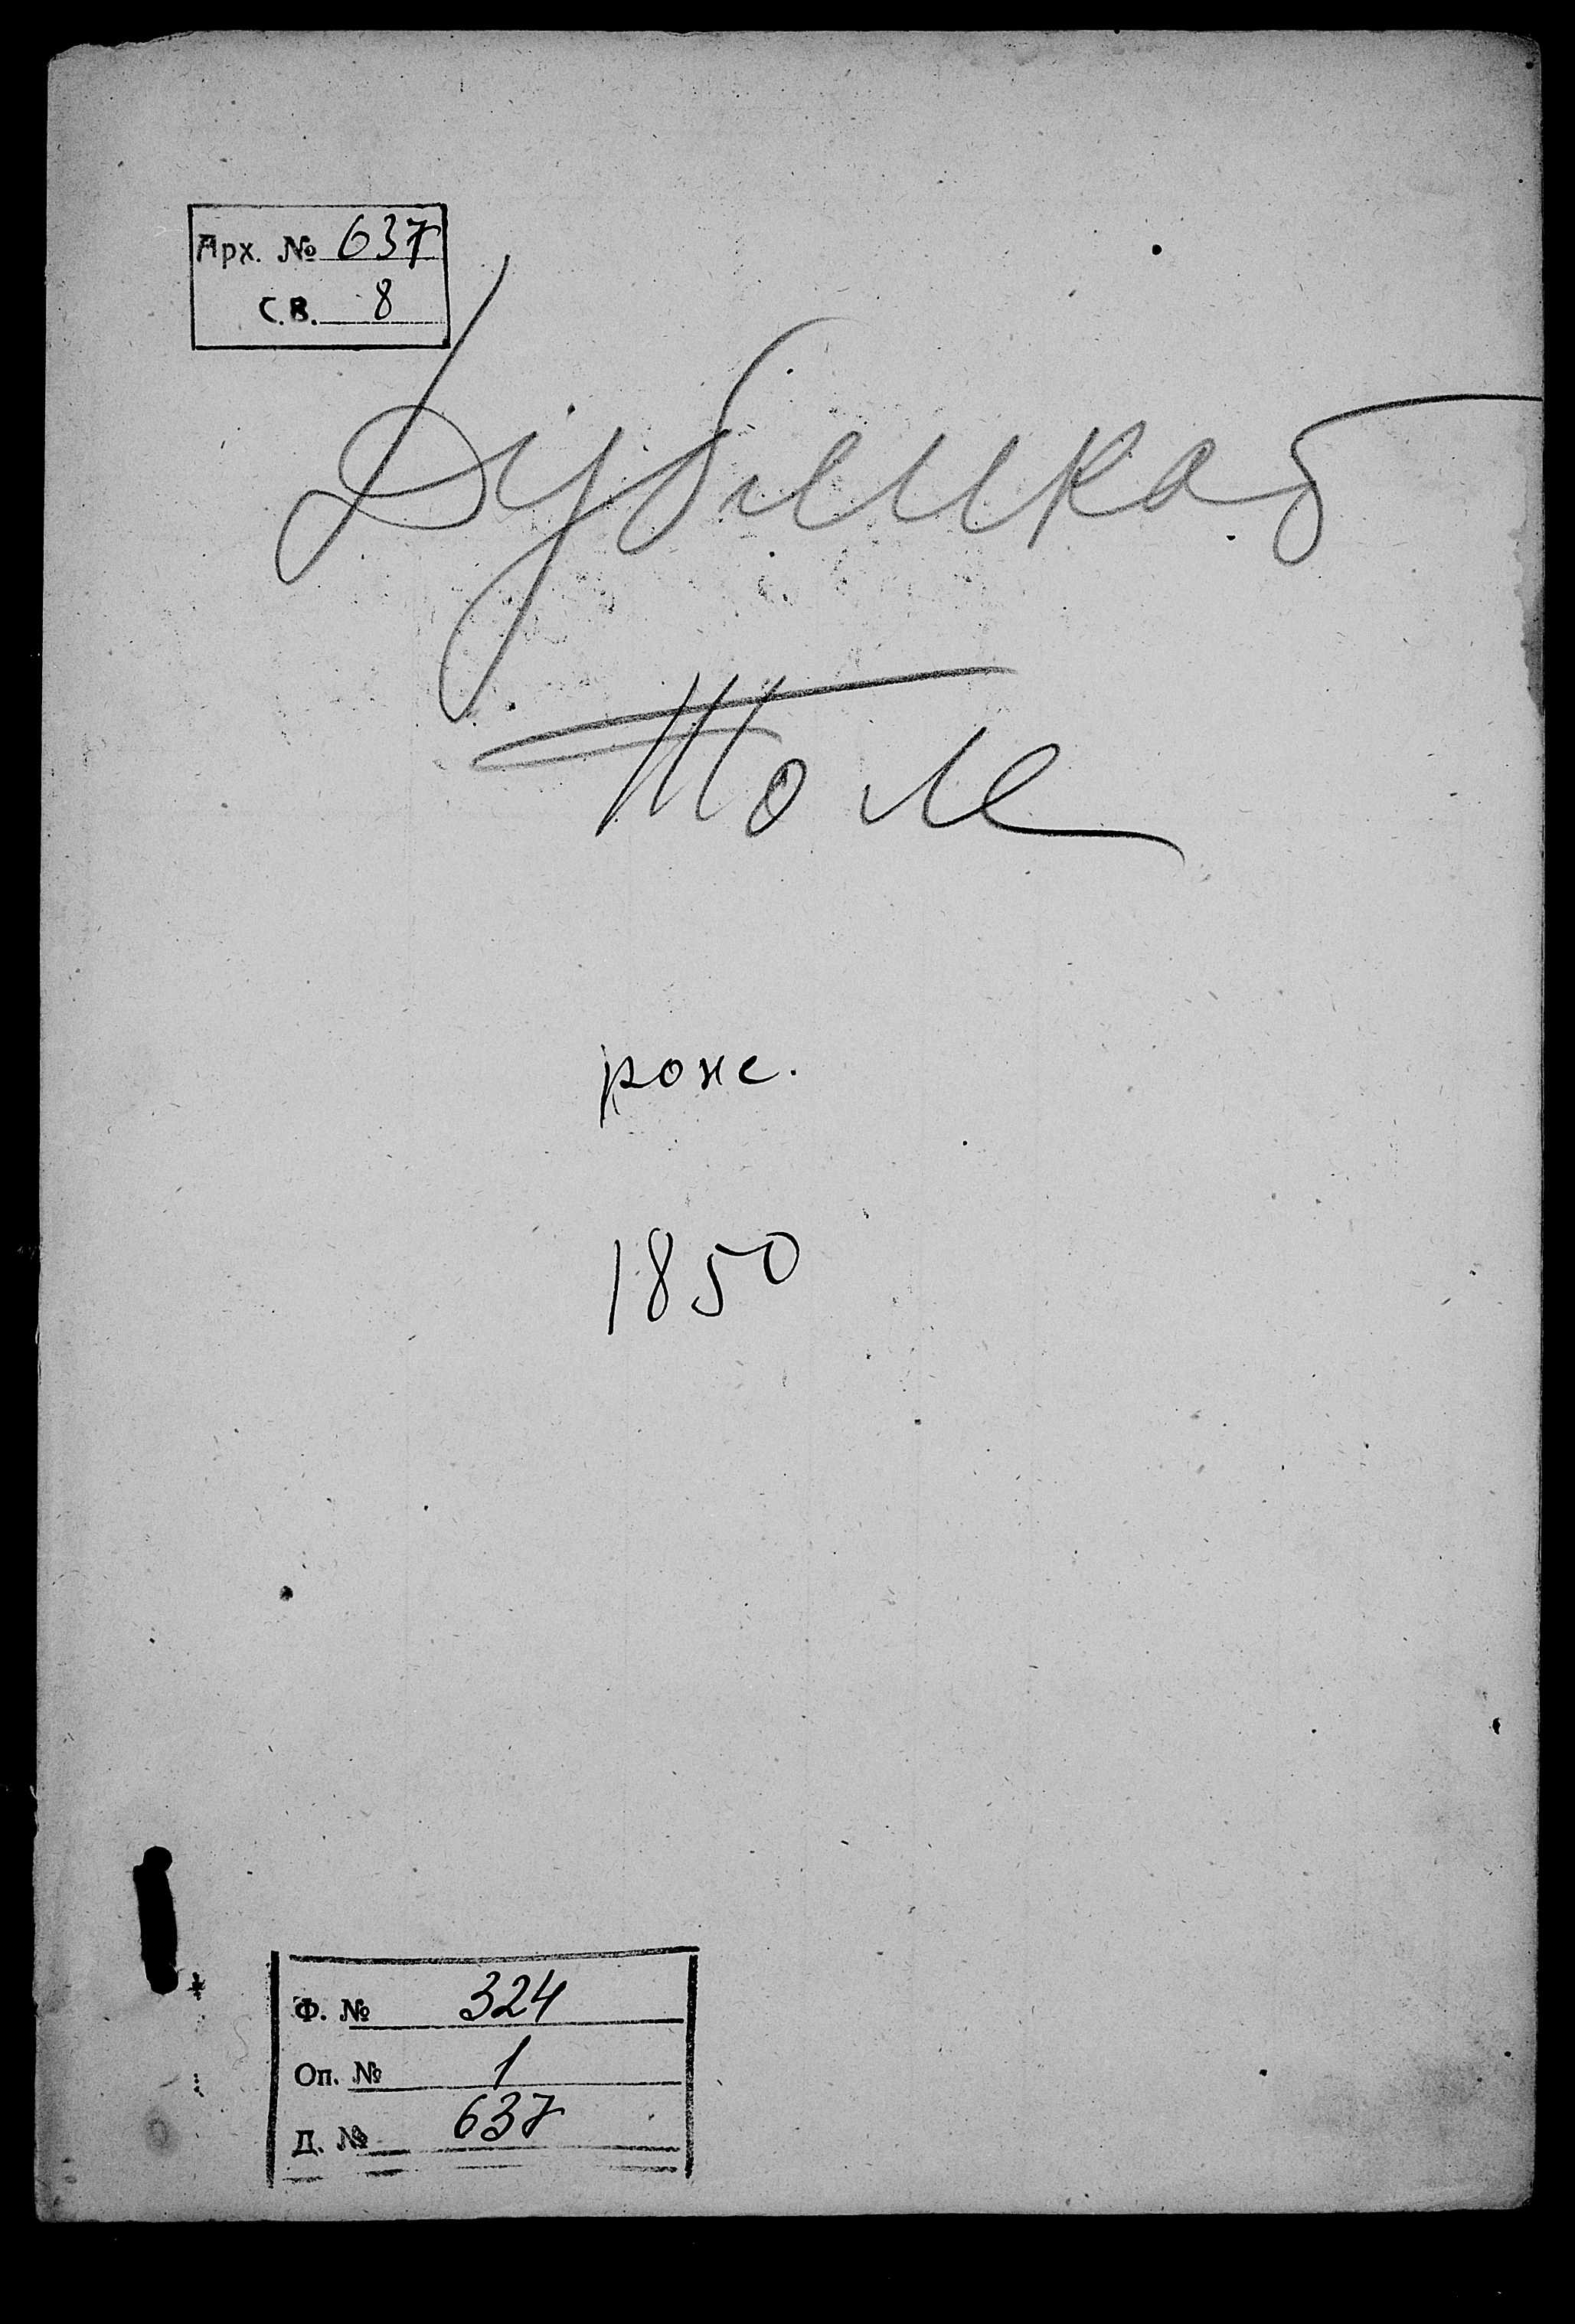 Арх. № 637
С.В. 8
Дубликат
Толе
рож.
1850
Ф. № 324
Оп. № 1
Д. № 637